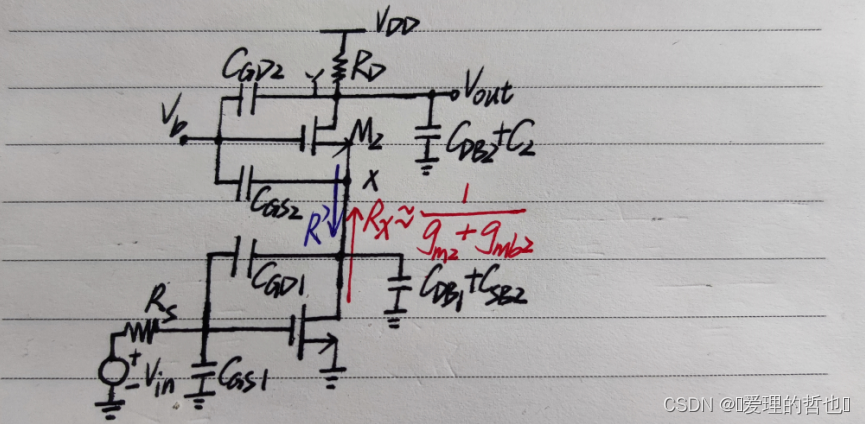 VDD
CGD2
Y
RD
Vout
Vb
M2
CDB2+C2
X
CGS2
R
RX≈1/gm2+gmb2
CGD1
CDB1+CSB2
RS
+
-Vin
CGS1
CSDN @🀫爱理的哲也🀫